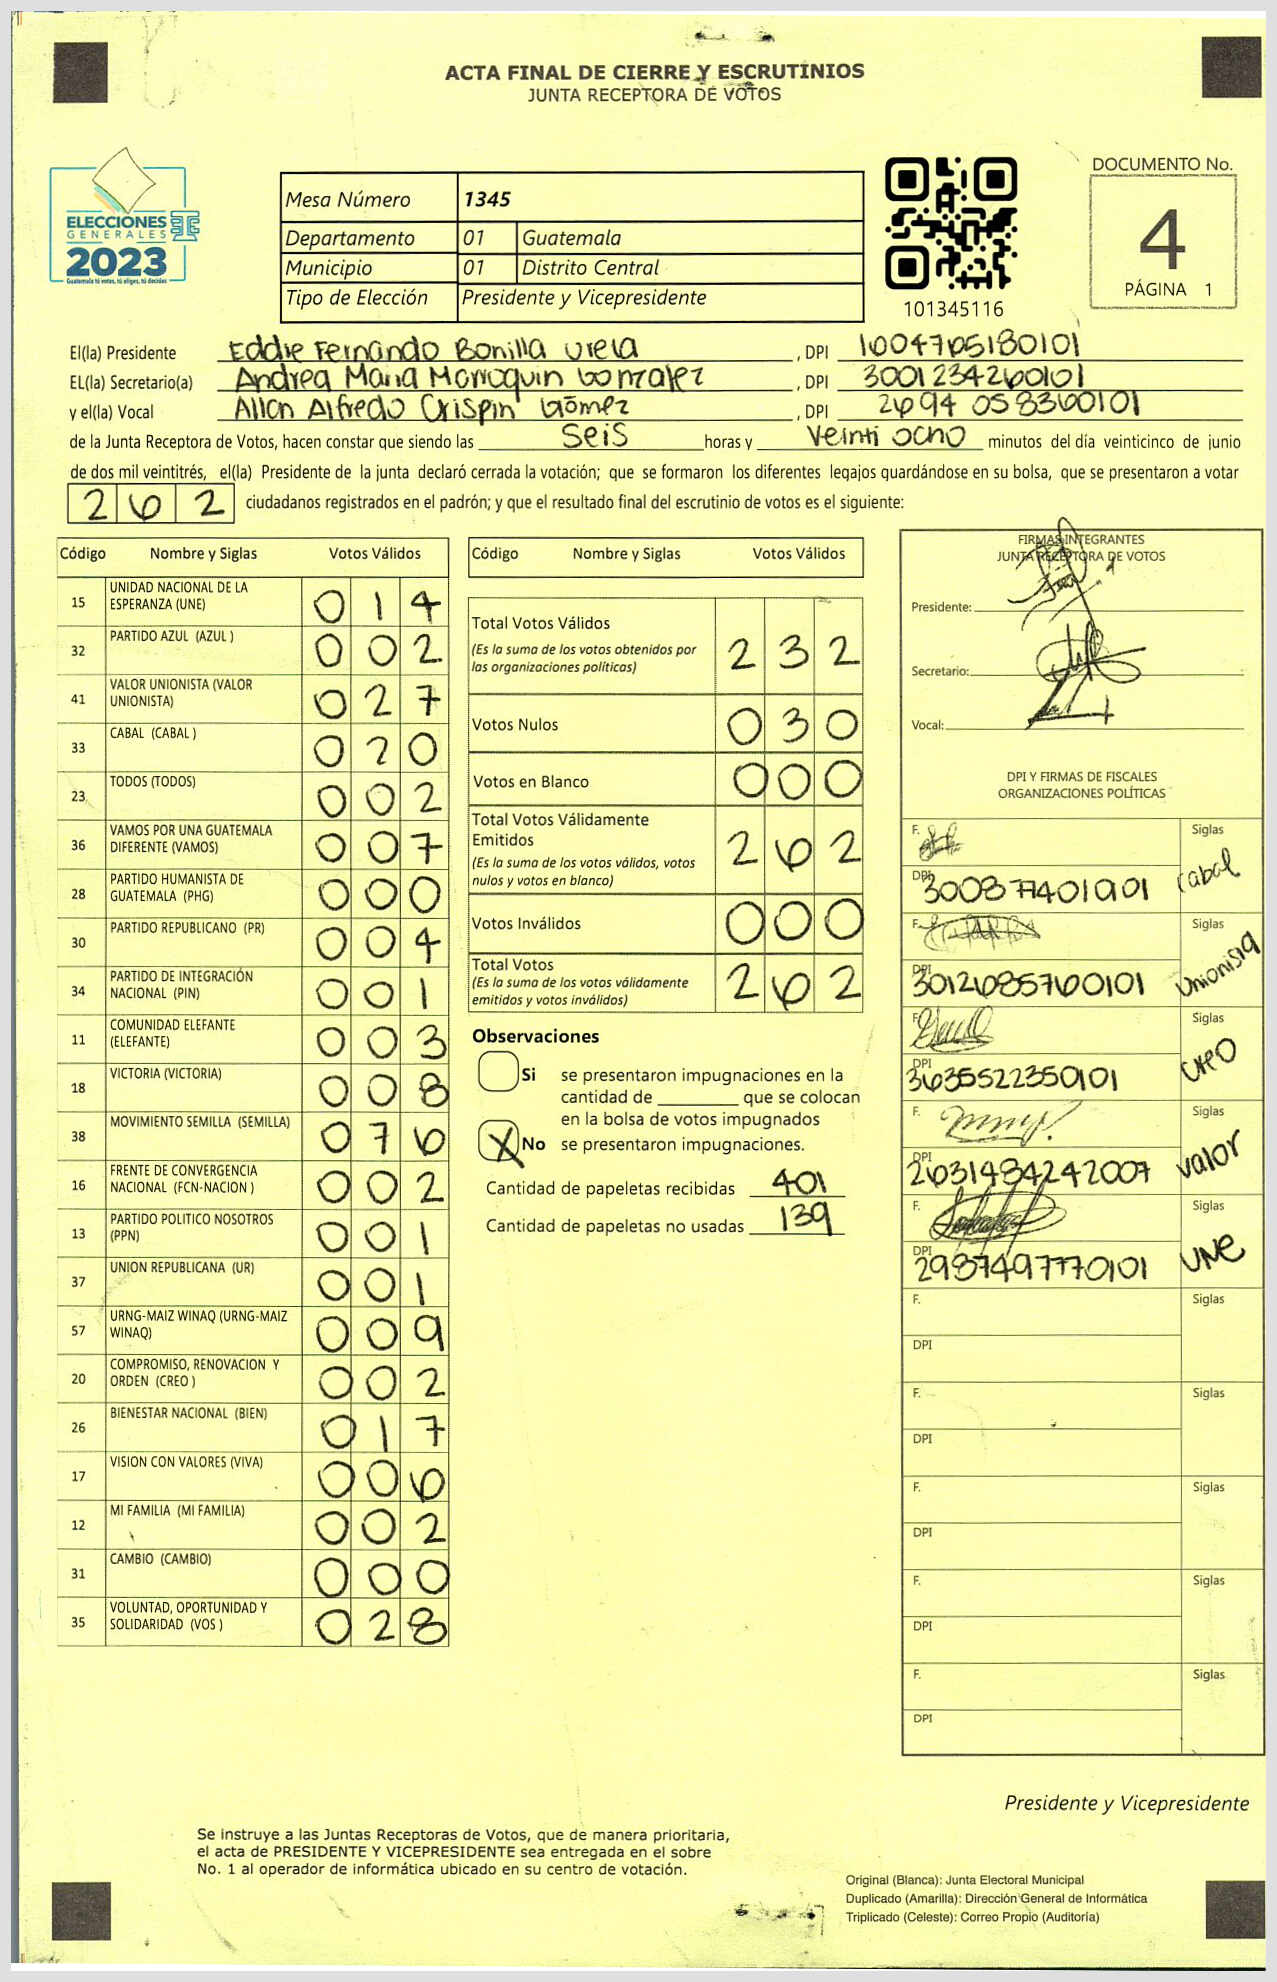 ACTA FINAL DE CIERRE Y ESCRUTINIOS
JUNTA RECEPTORA DE VOTOS
ELECCIONES
GENERALES
2023
Guatemala tú votas, tú eliges, tú decides
Mesa Número 1345
Departamento 01 Guatemala
Municipio 01 Distrito Central
Tipo de Elección Presidente y Vicepresidente
101345116
DOCUMENTO No.
4
PÁGINA 1
El(la) Presidente Eddie Fernando Bonilla Urela, DPI 1004705180101
EL(la) Secretario(a) Andrea Maria Marroquin Gonzalez, DPI 3001234260101
y el(la) Vocal Allan Alfredo Crispin Gómez, DPI 2694 058360101
de la Junta Receptora de Votos, hacen constar que siendo las seis horas y veinti ocho minutos del día veinticinco de junio
de dos mil veintitrés, el(la) Presidente de la junta declaró cerrada la votación; que se formaron los diferentes legajos guardándose en su bolsa, que se presentaron a votar
262 ciudadanos registrados en el padrón; y que el resultado final del escrutinio de votos es el siguiente:
Código Nombre y Siglas Votos Válidos
15 UNIDAD NACIONAL DE LA ESPERANZA (UNE) 014
32 PARTIDO AZUL (AZUL ) 002
41 VALOR UNIONISTA (VALOR UNIONISTA) 027
33 CABAL (CABAL ) 020
23 TODOS (TODOS) 002
36 VAMOS POR UNA GUATEMALA DIFERENTE (VAMOS) 007
28 PARTIDO HUMANISTA DE GUATEMALA (PHG) 000
30 PARTIDO REPUBLICANO (PR) 004
34 PARTIDO DE INTEGRACIÓN NACIONAL (PIN) 001
11 COMUNIDAD ELEFANTE (ELEFANTE) 003
18 VICTORIA (VICTORIA) 008
38 MOVIMIENTO SEMILLA (SEMILLA) 076
16 FRENTE DE CONVERGENCIA NACIONAL (FCN-NACION ) 002
13 PARTIDO POLITICO NOSOTROS (PPN) 001
37 UNION REPUBLICANA (UR) 001
57 URNG-MAIZ WINAQ (URNG-MAIZ WINAQ) 009
20 COMPROMISO, RENOVACION Y ORDEN (CREO ) 002
26 BIENESTAR NACIONAL (BIEN) 017
17 VISION CON VALORES (VIVA) 006
12 MI FAMILIA (MI FAMILIA) 002
31 CAMBIO (CAMBIO) 000
35 VOLUNTAD, OPORTUNIDAD Y SOLIDARIDAD (VOS ) 028
Código Nombre y Siglas Votos Válidos
Total Votos Válidos 232
(Es la suma de los votos obtenidos por
las organizaciones políticas)
Votos Nulos 030
Votos en Blanco 000
Total Votos Válidamente
Emitidos 262
(Es la suma de los votos válidos, votos
nulos y votos en blanco)
Votos Inválidos 000
Total Votos 262
(Es la suma de los votos válidamente
emitidos y votos inválidos)
Observaciones
Si se presentaron impugnaciones en la
cantidad de ________ que se colocan
en la bolsa de votos impugnados
X No se presentaron impugnaciones.
Cantidad de papeletas recibidas 401
Cantidad de papeletas no usadas 139
FIRMAS INTEGRANTES
JUNTA RECEPTORA DE VOTOS
Presidente:
Secretario:
Vocal:
DPI Y FIRMAS DE FISCALES
ORGANIZACIONES POLÍTICAS
F. Siglas
DPI 300877401901 Cabal
F. Siglas
DPI 3012685760101 Unionista
F. Siglas
DPI 3635522350101 CREO
F. Siglas
DPI 2631484242007 valor
F. Siglas
DPI 2987497770101 UNE
F. Siglas
DPI
F. Siglas
DPI
F. Siglas
DPI
F. Siglas
DPI
F. Siglas
DPI
Presidente y Vicepresidente
Se instruye a las Juntas Receptoras de Votos, que de manera prioritaria,
el acta de PRESIDENTE Y VICEPRESIDENTE sea entregada en el sobre
No. 1 al operador de informática ubicado en su centro de votación.
Original (Blanca): Junta Electoral Municipal
Duplicado (Amarilla): Dirección General de Informática
Triplicado (Celeste): Correo Propio (Auditoría)